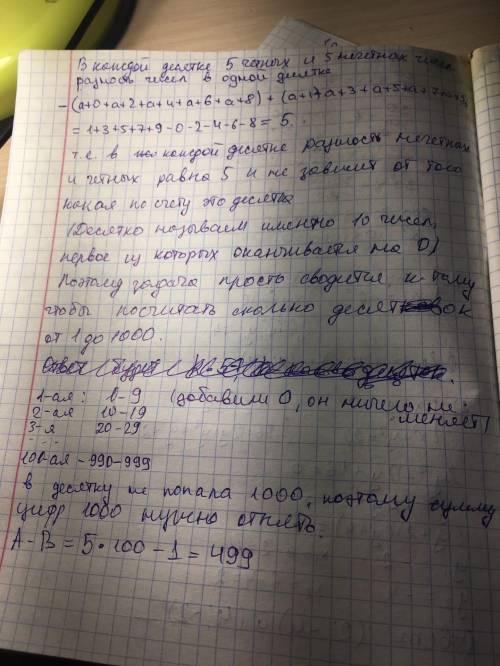 В каждой десятке 5 четных и 5 нечетных чисел
разность чисел в одной десятке
-(a+0+a+2+a+4+a+6+a+8)+(a+1+a+3+a+5+a+7+a+9)
=1+3+5+7+9-0-2-4-6-8=5.
т.е. в каждой десятке разность нечетных
и четных равна 5 и не зависит от того
какая по счету это десятка
(Десяткой называем именно 10 чисел,
первое из которых оканчивается на 0)
Поэтому задача просто сводится к тому
чтобы посчитать сколько десяток
от 1 до 1000.
1-ая: 0-9 (добавили 0, он ничего не меняет)
2-ая 10-19
3-я 20-29
....
100-ая -990-999
в десятку не попала 1000, поэтому сумму
цифр 1000 нужно отнять.
A-B=5·100-1=499